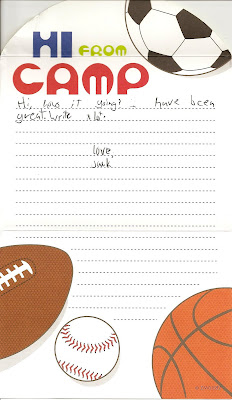 HI FROM
CAMP
Hi, how is it going? I have been
great. write a lot.
love,
Jack